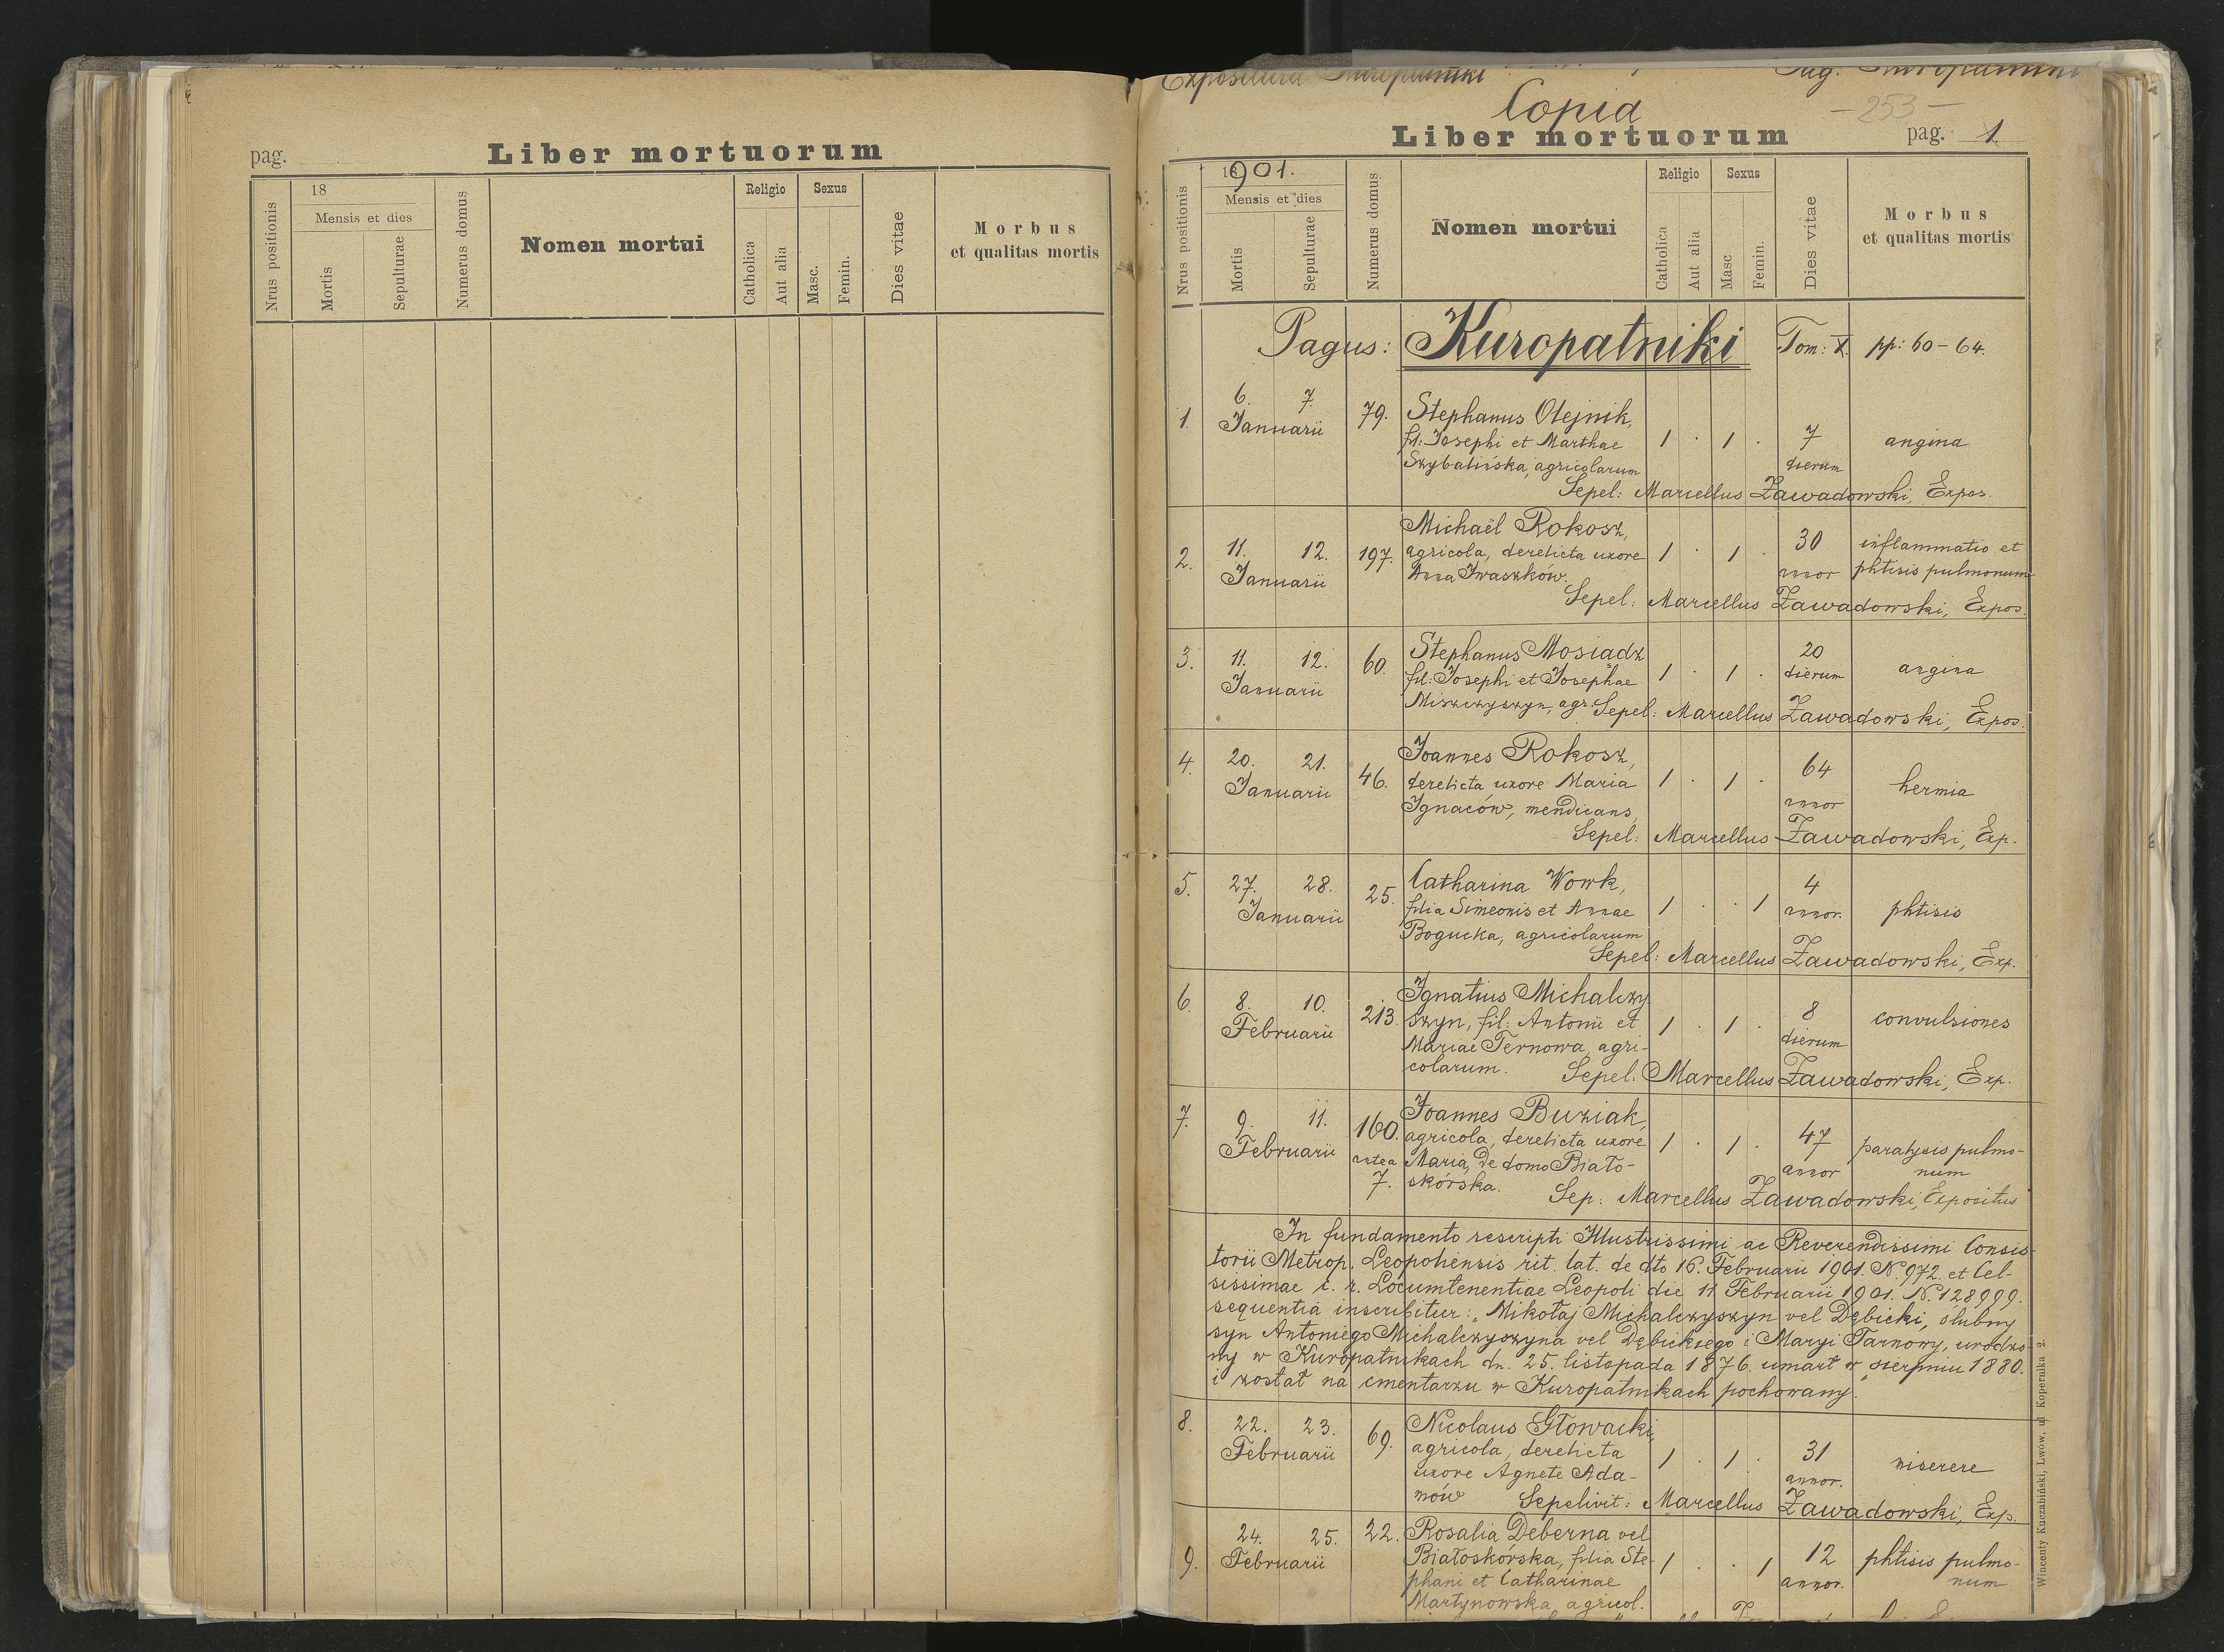 pag.
Liber mortuorum
Nrus positionis
18
Mensis et dies
Mortis
Sepulturae
Numerus domus
Nomen mortui
Religio
Catholica
Aut alia
Sexus
Masc.
Femin.
Dies vitae
Morbus
et qualitas mortis
Expositura Kuropatniki
Pag. Kuropatniki
Copia
- 253 -
Liber mortuorum
pag. 1
Nrus positionis
1901.
Mensis et dies
Mortis
Sepulturae
Numerus domus
Nomen mortui
Religio
Catholica
Aut alia
Sexus
Masc
Femin.
Dies vitae
Morbus
et qualitas mortis
Pagus: Kuropatniki Tom: X. pp: 60-64.
1. 6. 7. Januarii 79. Stephanus Olejnik,
fil: Josephi et Marthae 1 . 1 . 7 dierum angina
Szybalińska, agricolarum
Sepel: Marcellus Zawadowski, Expos.
2. 11. 12. Januarii 197. Michaël Rokosz,
agricola, derelicta uxore 1 . 1 . 30 annor inflammatio et
Anna Iwaszków. phtisis pulmonum
Sepel: Marcellus Zawadowski, Expos.
3. 11. 12. Januarii 60. Stephanus Mosiadz
fil: Josephi et Josephae 1 . 1 . 20 dierum angina
Miszczyszyn, agr. Sepel: Marcellus Zawadowski, Expos.
4. 20. 21. Januarii 46. Joannes Rokosz,
derelicta uxore Maria 1 . 1 . 64 annor hermia
Ignaców, mendicans,
Sepel: Marcellus Zawadowski, Exp.
5. 27. 28. Januarii 25. Catharina Wowk,
filia Simeonis et Annae 1 . . 1 4 annor. phtisis
Bogucka, agricolarum
Sepel: Marcellus Zawadowski, Exp.
6. 8. 10. Februarii 213. Ignatius Michalczy
szyn, fil: Antonii et 1 . 1 . 8 dierum convulsiones
Mariae Ternowa, agri-
colarum. Sepel: Marcellus Zawadowski, Exp.
7. 9. 11. Februarii 160. antea 7. Joannes Buziak,
agricola, derelicta uxore 1 . 1 . 47 annor paralysis pulmo-
Maria, de domo Biało- num
skórska. Sep: Marcellus Zawadowski, Expositus
In fundamento rescripti Illustrissimi ac Reverendissimi Consis-
torii Metrop. Leopoliensis rit. lat. de dto 16. Februarii 1901. N. 972. et Cel-
sissimae c. r. Locumtenentiae Leopoli die 11 Februarii 1901. N. 128999.
sequentia inscribitur: „Mikołaj Michalczyszyn vel Dębicki, ślubny
syn Antoniego Michalczyszyna vel Dębickiego i Maryi Tarnowy, urodzo
ny w Kuropatnikach dn. 25. listopada 1876. umarł w sierpniu 1880.
i został na cmentarzu w Kuropatnikach pochowany."
8. 22. 23. Februarii 69. Nicolaus Głowacki,
agricola, derelicta 1 . 1 . 31 annor. miserere
uxore Agnete Ada-
mów Sepelivit: Marcellus Zawadowski, Exp.
9. 24. 25. Februarii 22. Rosalia Deberna vel
Białoskórska, filia Ste- 1 . . 1 12 annor. phtisis pulmo-
phani et Catharinae num
Martynowska, agricol.
Wincenty Kuczabiński, Lwów, ul Kopernika 2.